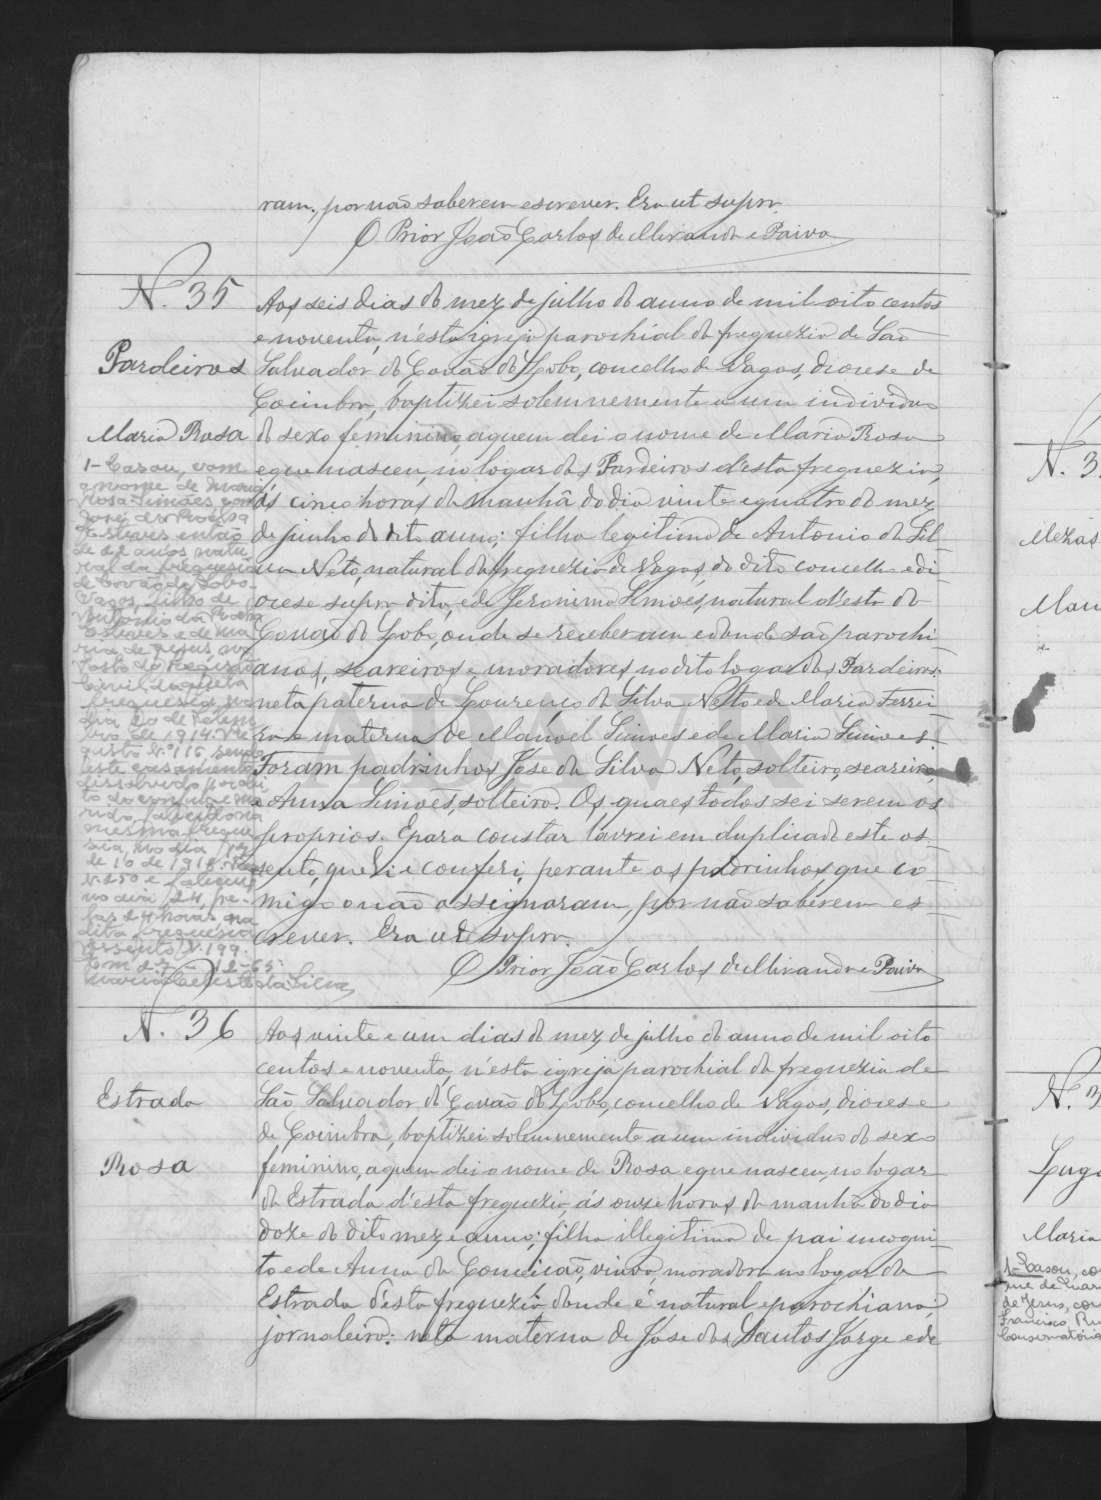 ram, por não saberem escrever. Era ut supra.
O Prior João Carlos de Miranda e Paiva
N. 35
Pardeiros
Maria Rosa
Aos seis dias do mez de julho do anno de mil oito centos
e noventa, n'esta igreja parochial da freguezia de São
Salvador do Covão do Lobo, concelho de Vagos, diocese de
Coimbra, baptizei solemnemente a um individuo
do sexo feminino, a quem dei o nome de Maria Rosa
e que nasceu, no logar dos Pardeiros d'esta freguezia,
ás cinco horas da manhã do dia vinte e quatro do mez
de junho do dito anno; filha legitima de Antonio da Sil-
va Neto, natural da freguezia de Vagos, do dito concelho e di-
ocese supra dita, e de Jeronima Simões, natural d'esta do
Covão do Lobo, onde se receberam e donde são parochi-
anos, seareiros e moradores no dito logar dos Pardeiros:
neta paterna de Lourenço da Silva Netto e de Maria Ferrei-
ra e materna de Manoel Simões e de Maria Simões.
Foram padrinhos José da Silva Neto, solteiro, seareiro,
e Anna Simões, solteira. Os quaes todos sei serem os
proprios. E para constar lavrei em duplicado este as-
sento, que li e conferi, perante os padrinhos, que co-
migo o não assignaram, por não saberem es-
crever. Era ut supra.
O Prior João Carlos de Miranda e Paiva
1- Casou, com
o nome de Maria
Rosa Simões, com
José da Rocha
Esteves então
de 22 anos natu-
ral da freguesia
de Covão do Lobo,
Vagos, filho de
Antonio da Rocha
Esteves e de Ma-
ria de Jesus, no
Posto do Registo
Civil daquela
freguesia, no
dia 20 de
de 1914.
gisto N.º 116 sendo
este casamento
dissolvido por óbi-
to do conjuge ma-
rido, falecido na
mesma fregue-
sia, no dia
de 16 de 1918.
N.250 e faleceu
no dia 24, pe-
las 24 horas na
dita freguesia
Assento N. 199.
Em 27-12-65.
Maria Celeste da Silva
N. 36
Estrada
Rosa
Aos vinte e um dias do mez de julho do anno de mil oito
centos e noventa, n'esta igreja parochial da freguezia de
São Salvador do Covão do Lobo, concelho de Vagos, diocese
de Coimbra, baptizei solemnemente a um individuo do sexo
feminino, a quem dei o nome de Rosa e que nasceu, no logar
da Estrada d'esta freguezia, ás onze horas da manhã do dia
doze do dito mez e anno; filha illegitima de pai incogni-
to e de Anna da Conceição, viuva, moradora no logar da
Estrada d'esta freguezia, donde é natural e parochiana,
jornaleira: neta materna de José dos Santos Jorge e de
ADAVR
N. 3
Mezas
N. 3
Maria
1- Casou, co
de Jesus, com
Francisco
Conservatória